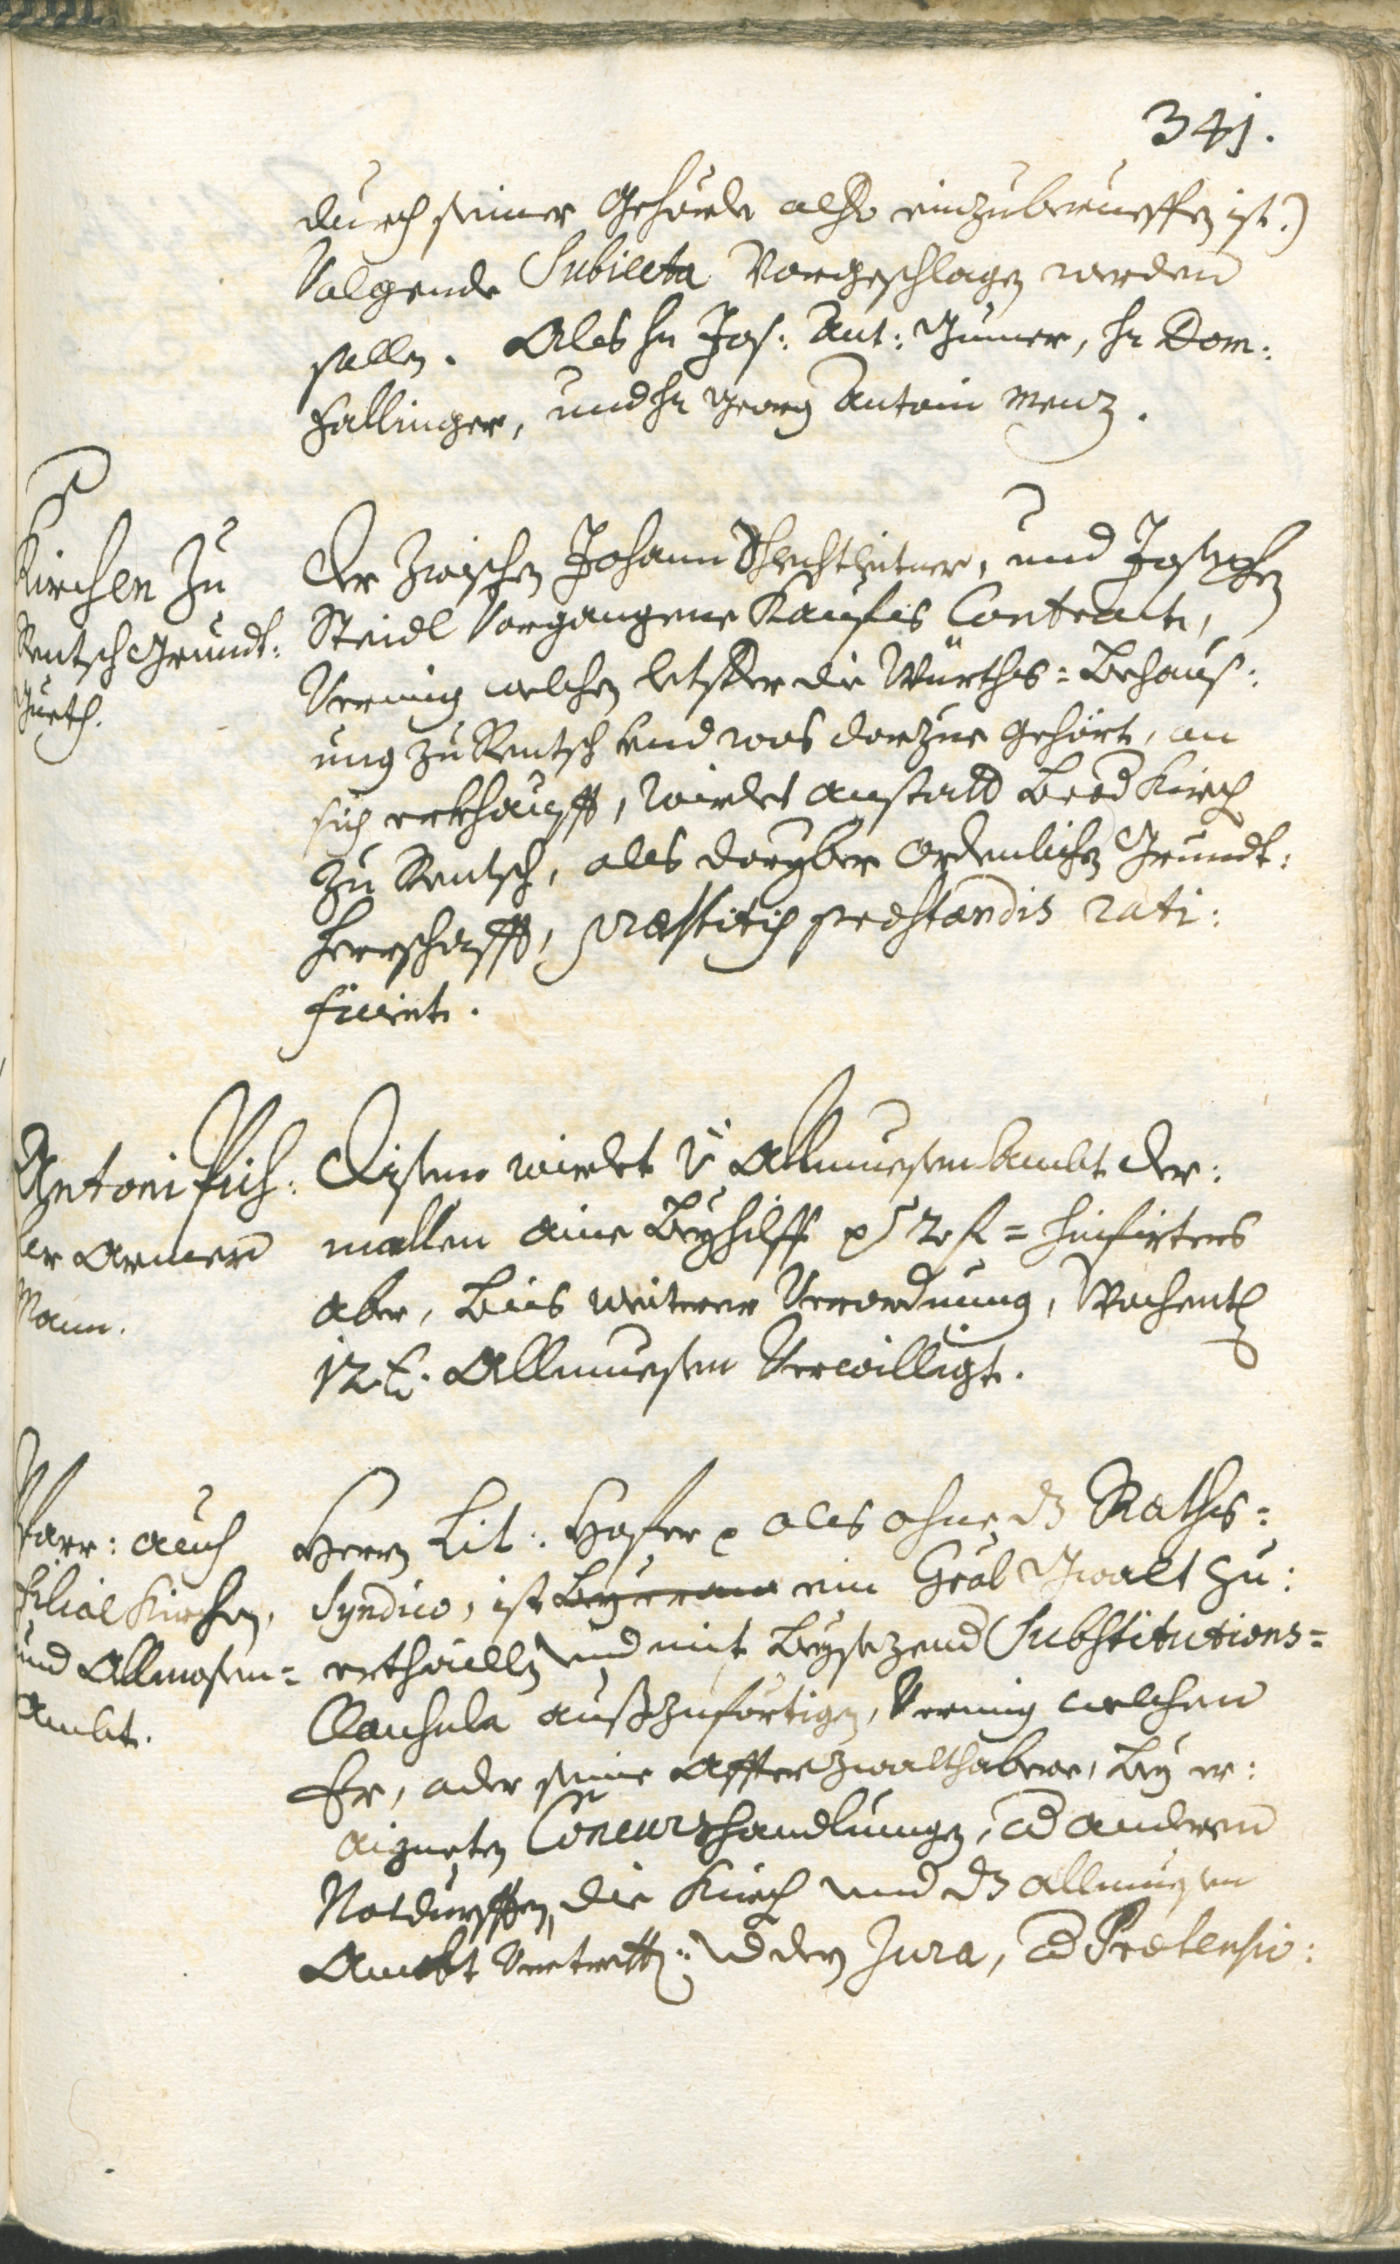 341.
durch seiner Gehörde also einzuberueffen ist.)
Volgende Subiecta Vorgeschlagen werden
sollen. Als hr Jos: Ant: Gumer, hr Dom:
Fallinger, und hr Georg Antoni Menz.
Kirchen zu
Rentsch Grundt:
Gueth.
Der zwischen Johann Schlechtleitner, und Josephen
Steidl Vorgangene Kaufs Contract,
Vermig welchen letster die Würths=Behaus:
ung zu Rentsch und was darzue gehört, an
sich erkhaufft, wirdet anstatt L. Kirch
zu Rentsch, als daryber ordenlichen Grundt:
herrschafft, praestitis praestandis rati:
ficiert.
Antoni Pich:
ler armen
Mann.
Disem wirdet v Allmuesenambt der:
mallen aine Beyhilff p 2 f = hinfirters
aber, bis weiterer Verordnung, Wochentl
12 x. Allmuesen Verwilligt.
Pfarr: auch
Filial Kirchen,
und Allmosen=
Ambt.
Herrn Lit: Hofer als ohne dz Raths=
Syndico, ist ein Gral Gwalt zu:
erthaillen und mit beysezend Substitutions=
Clausula außzufertigen, Vermig welchen
Er, oder seine Affterzwalthabere, bey er:
aigneten Concurshandlungen, ad anderen
Notdurfften, die Kirch und dz Allmuesen
Ambt Vertretten und den Jura, ad Praetensio: